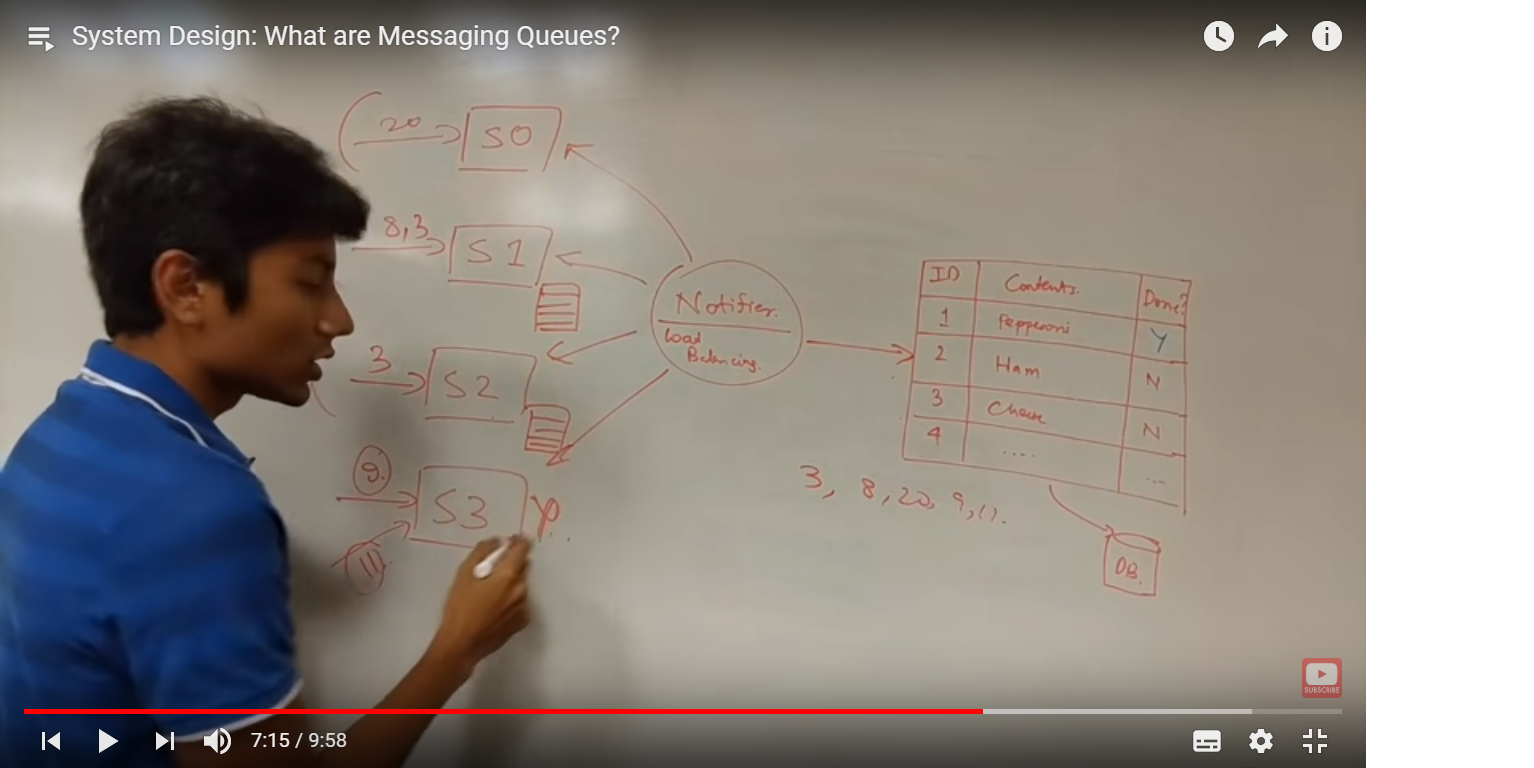 System Design: What are Messaging Queues?
20
S0
8,3
S1
3
S2
9
S3
11
Notifier.
Load
Balancing.
ID Contents. Done?
1 Pepperoni Y
2 Ham N
3 Cheese N
4 .... ...
3, 8, 20, 9, 11.
DB.
SUBSCRIBE
7:15 / 9:58